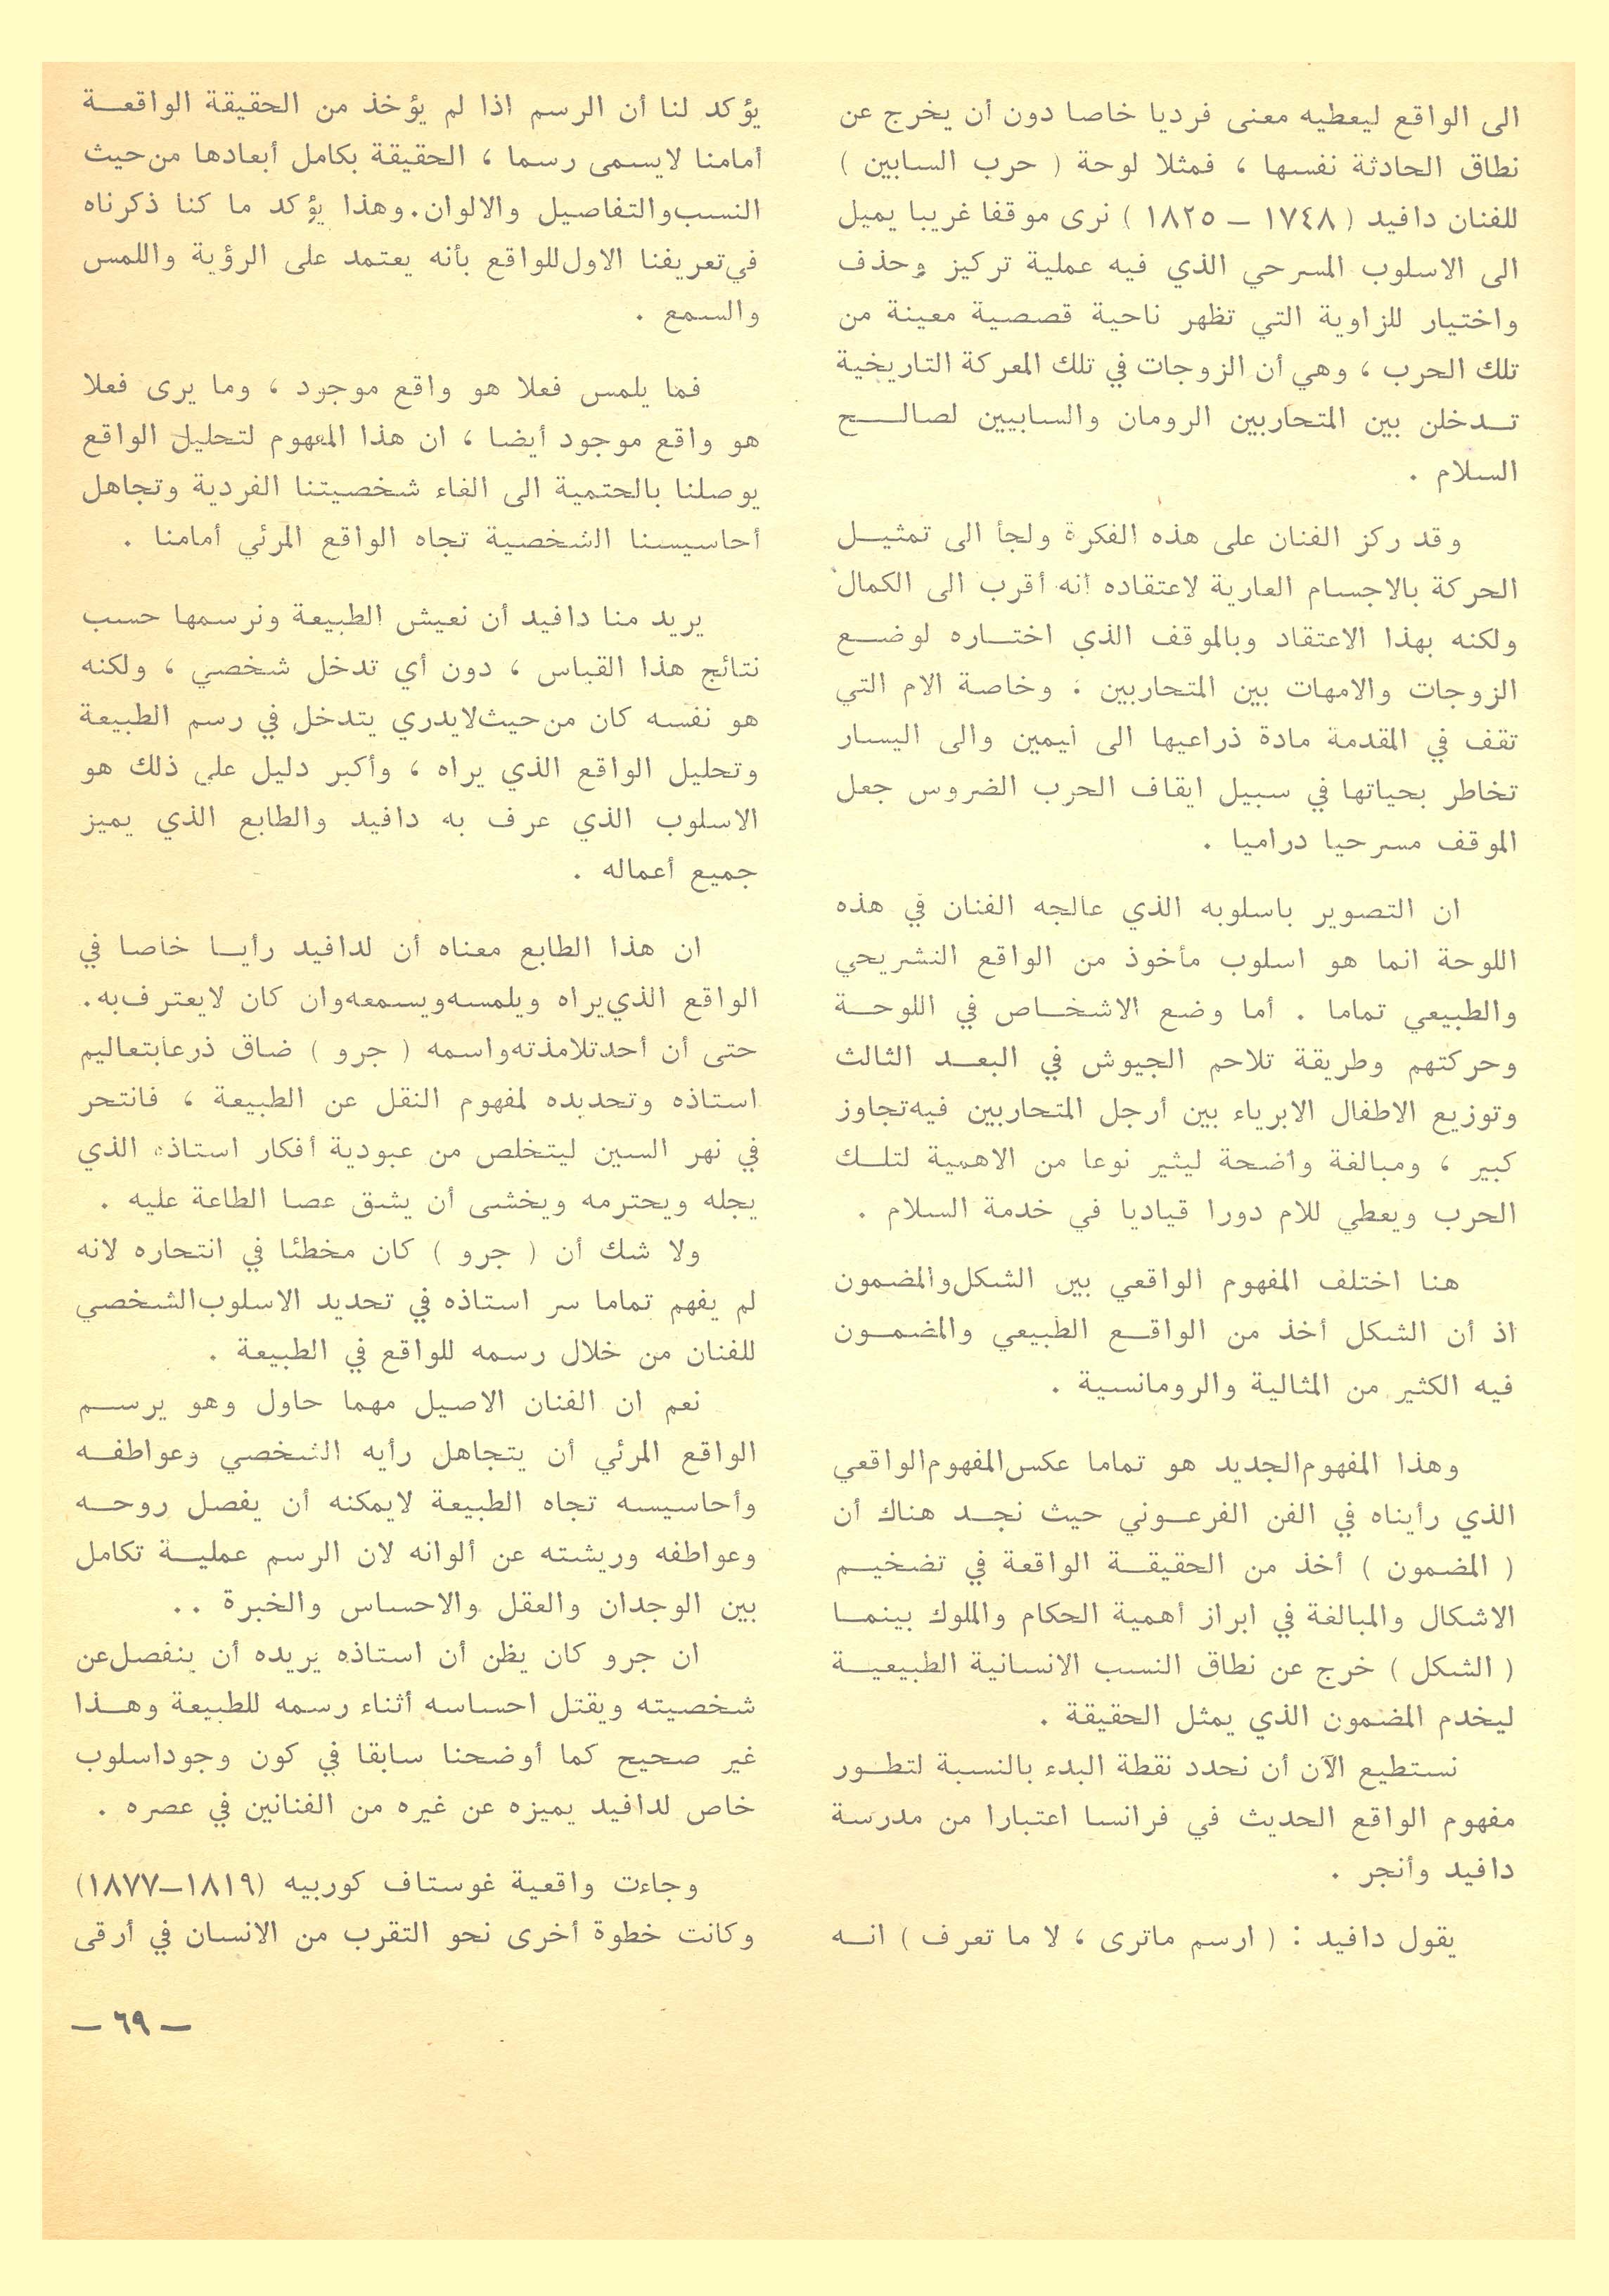 الى الواقع ليعطيه معنى فرديا خاصا دون أن يخرج عن
نطاق الحادثة نفسها ، فمثلا لوحة ( حرب السابين )
للفنان دافيد ( ١٧٤٨ ـ ١٨٢٥ ) نرى موقفا غريبا يميل
الى الاسلوب المسرحي الذي فيه عملية تركيز وحذف
واختيار للزاوية التي تظهر ناحية قصصية معينة من
تلك الحرب ، وهي أن الزوجات في تلك المعركة التاريخية
تـدخلن بين المتحاربين الرومان والسابيين لصالـــح
السلام .
وقد ركز الفنان على هذه الفكرة ولجأ الى تمثيــل
الحركة بالاجسام العارية لاعتقاده أنه أقرب الى الكمال
ولكنه بهذا الاعتقاد وبالموقف الذي اختــاره لوضـــع
الزوجات والامهات بين المتحاربين : وخاصة الام التي
تقف في المقدمة مادة ذراعيها الى أيمين والى اليسار
تخاطر بحياتها في سبيل ايقاف الحرب الضروس جعل
الموقف مسرحيا دراميا .
ان التصوير باسلوبه الذي عالجه الفنان في هذه
اللوحة انما هو اسلوب مأخوذ من الواقع النشريحي
والطبيعي تماما . أما وضع الاشخــاص في اللوحــة
وحركتهم وطريقة تلاحم الجيوش في البعــد الثالث
وتوزيع الاطفال الابرياء بين أرجل المتحاربين فيه تجاوز
كبير ، ومبالغة وأضحة ليثير نوعا من الاهمية لتلــك
الحرب ويعطي للام دورا قياديا في خدمة السلام .
هنا اختلف المفهوم الواقعي بين الشكل والمضمون
اذ أن الشكل أخذ من الواقــع الطبيعي والمضمــون
فيه الكثير من المثالية والرومانسية .
وهذا المفهوم الجديد هو تماما عكس المفهوم الواقعي
الذي رأيناه في الفن الفرعــوني حيث نجــد هناك أن
( المضمون ) أخذ من الحقيقــة الواقعة في تضخيــم
الاشكال والمبالغة في ابراز أهمية الحكام والملوك بينمــا
( الشكل ) خرج عن نطاق النسب الانسانية الطبيعيــة
ليخدم المضمون الذي يمثل الحقيقة .
نستطيع الآن أن نحدد نقطة البدء بالنسبة لتطــور
مفهوم الواقع الحديث في فرانسا اعتبارا من مدرسة
دافيد وأنجر .
يقول دافيد : ( ارسم ماترى ، لا ما تعرف ) انــه
يؤكد لنا أن الرسم اذا لم يؤخذ من الحقيقة الواقعــة
أمامنا لايسمى رسما ، الحقيقة بكامل أبعادها من حيث
النسب والتفاصيل والالوان . وهذا يؤكد ما كنا ذكرناه
في تعريفنا الاول للواقع بأنه يعتمد على الرؤية واللمس
والسمع .
فما يلمس فعلا هو واقع موجود ، وما يرى فعلا
هو واقع موجود أيضا ، ان هذا المفهوم لتحليل الواقع
يوصلنا بالحتمية الى الغاء شخصيتنا الفردية وتجاهل
أحاسيسنا الشخصية تجاه الواقع المرئي أمامنا .
يريد منا دافيد أن نعيش الطبيعة ونرسمها حسب
نتائج هذا القياس ، دون أي تدخل شخصي ، ولكنه
هو نفسه كان من حيث لايدري يتدخل في رسم الطبيعة
وتحليل الواقع الذي يراه ، وأكبر دليل على ذلك هو
الاسلوب الذي عرف به دافيد والطابع الذي يميز
جميع أعماله .
ان هذا الطابع معناه أن لدافيد رأيــا خاصا في
الواقع الذي يراه ويلمسه ويسمعه وان كان لايعترف به .
حتى أن أحد تلامذته واسمه ( جرو ) ضاق ذرعا بتعاليم
استاذه وتحديده لمفهوم النقل عن الطبيعة ، فانتحر
في نهر السين ليتخلص من عبودية أفكار استاذه الذي
يجله ويحترمه ويخشى أن يشق عصا الطاعة عليه .
ولا شك أن ( جرو ) كان مخطئا في انتحاره لانه
لم يفهم تماما سر استاذه في تحديد الاسلوب الشخصي
للفنان من خلال رسمه للواقع في الطبيعة .
نعم ان الفنان الاصيل مهما حاول وهو يرســم
الواقع المرئي أن يتجاهل رأيه الشخصي وعواطفــه
وأحاسيسه تجاه الطبيعة لايمكنه أن يفصل روحــه
وعواطفه وريشته عن ألوانه لان الرسم عمليــة تكامل
بين الوجدان والعقل والاحساس والخبرة . .
ان جرو كان يظن أن استاذه يريده أن ينفصل عن
شخصيته ويقتل احساسه أثناء رسمه للطبيعة وهــذا
غير صحيح كما أوضحنا سابقا في كون وجود اسلوب
خاص لدافيد يميزه عن غيره من الفنانين في عصره .
وجاءت واقعية غوستاف كوربيه (١٨١٩ـ١٨٧٧)
وكانت خطوة أخرى نحو التقرب من الانسان في أرقى
ـ ٦٩ ـ